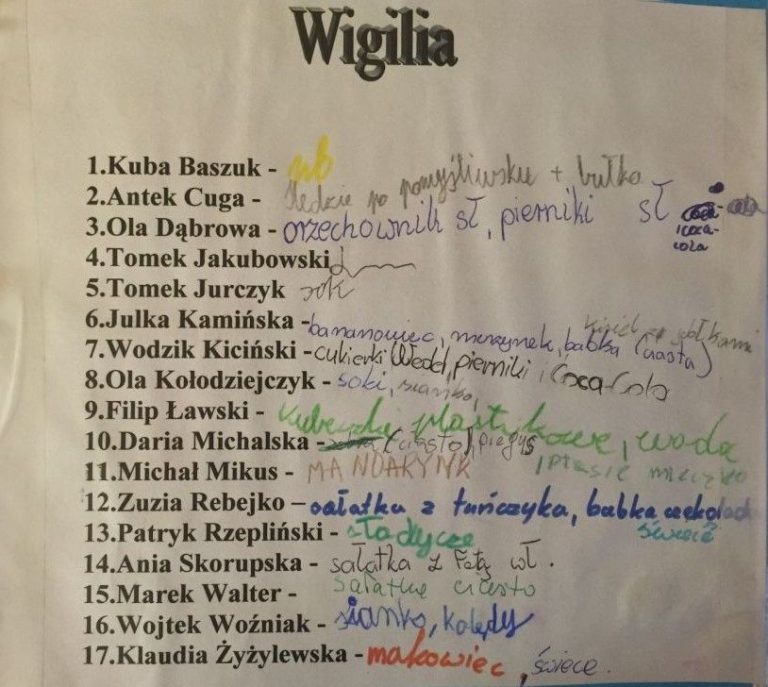 Wigilia
1.Kuba Baszuk -
2.Antek Cuga - śledzie po pomyśliwsku + bułka
3.Ola Dąbrowa - orzechownik sł, pierniki sł
coca-cola
4.Tomek Jakubowski
5.Tomek Jurczyk sok
6.Julka Kamińska - bananowiec, murzynek, babka (ciasta)
7.Wodzik Kiciński - cukierki Wedel, pierniki, Coca-Cola
8.Ola Kołodziejczyk - soki, sianko,
9.Filip Ławski - kubeczki plastikowe, woda
10.Daria Michalska - (ciasto) piegus
, ptasie mleczko
11.Michał Mikus - MANDARYNK
12.Zuzia Rebejko – sałatka z tuńczyka, babka czekolad
świece
13.Patryk Rzepliński - słodycze
14.Ania Skorupska - sałatka z Fetą wł.
15.Marek Walter - sałatkę ciasto
16.Wojtek Woźniak - sianko, kolędy
17.Klaudia Żyżylewska - makowiec, świece.